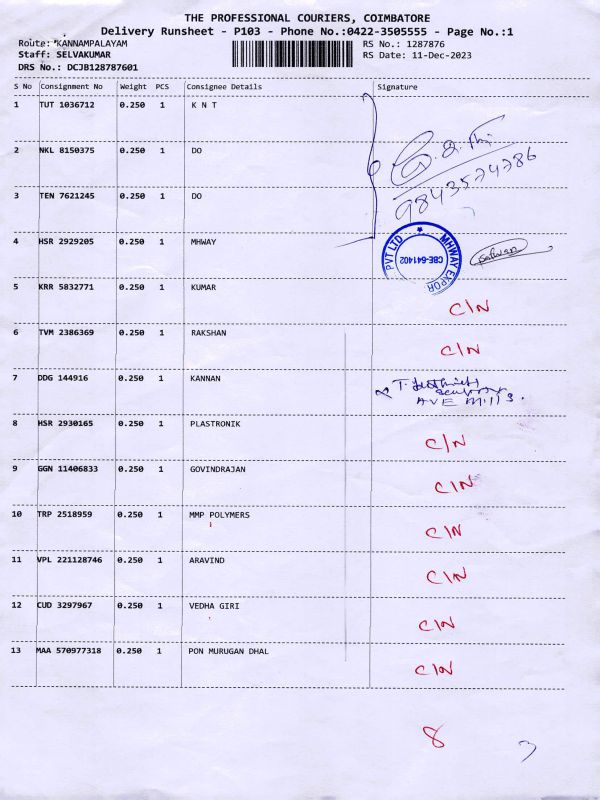 THE PROFESSIONAL COURIERS, COIMBATORE
Delivery Runsheet - P103 - Phone No.:0422-3505555 - Page No.:1
Route: KANNAMPALAYAM
RS No.: 1287876
Staff: SELVAKUMAR
RS Date: 11-Dec-2023
DRS No.: DCJB128787601
S No Consignment No Weight PCS Consignee Details Signature
1 TUT 1036712 0.250 1 K N T
2 NKL 8150375 0.250 1 DO
9843574786
3 TEN 7621245 0.250 1 DO
4 HSR 2929205 0.250 1 MHWAY
MHWAY EXPOR PVT LTD
CBE-641402
5 KRR 5832771 0.250 1 KUMAR C/N
6 TVM 2386369 0.250 1 RAKSHAN C\N
7 DDG 144916 0.250 1 KANNAN
AVE Mills.
8 HSR 2930165 0.250 1 PLASTRONIK C/N
9 GGN 11406833 0.250 1 GOVINDRAJAN C\N
10 TRP 2518959 0.250 1 MMP POLYMERS C\N
11 VPL 221128746 0.250 1 ARAVIND C\N
12 CUD 3297967 0.250 1 VEDHA GIRI C\N
13 MAA 570977318 0.250 1 PON MURUGAN DHAL C\N
8 3